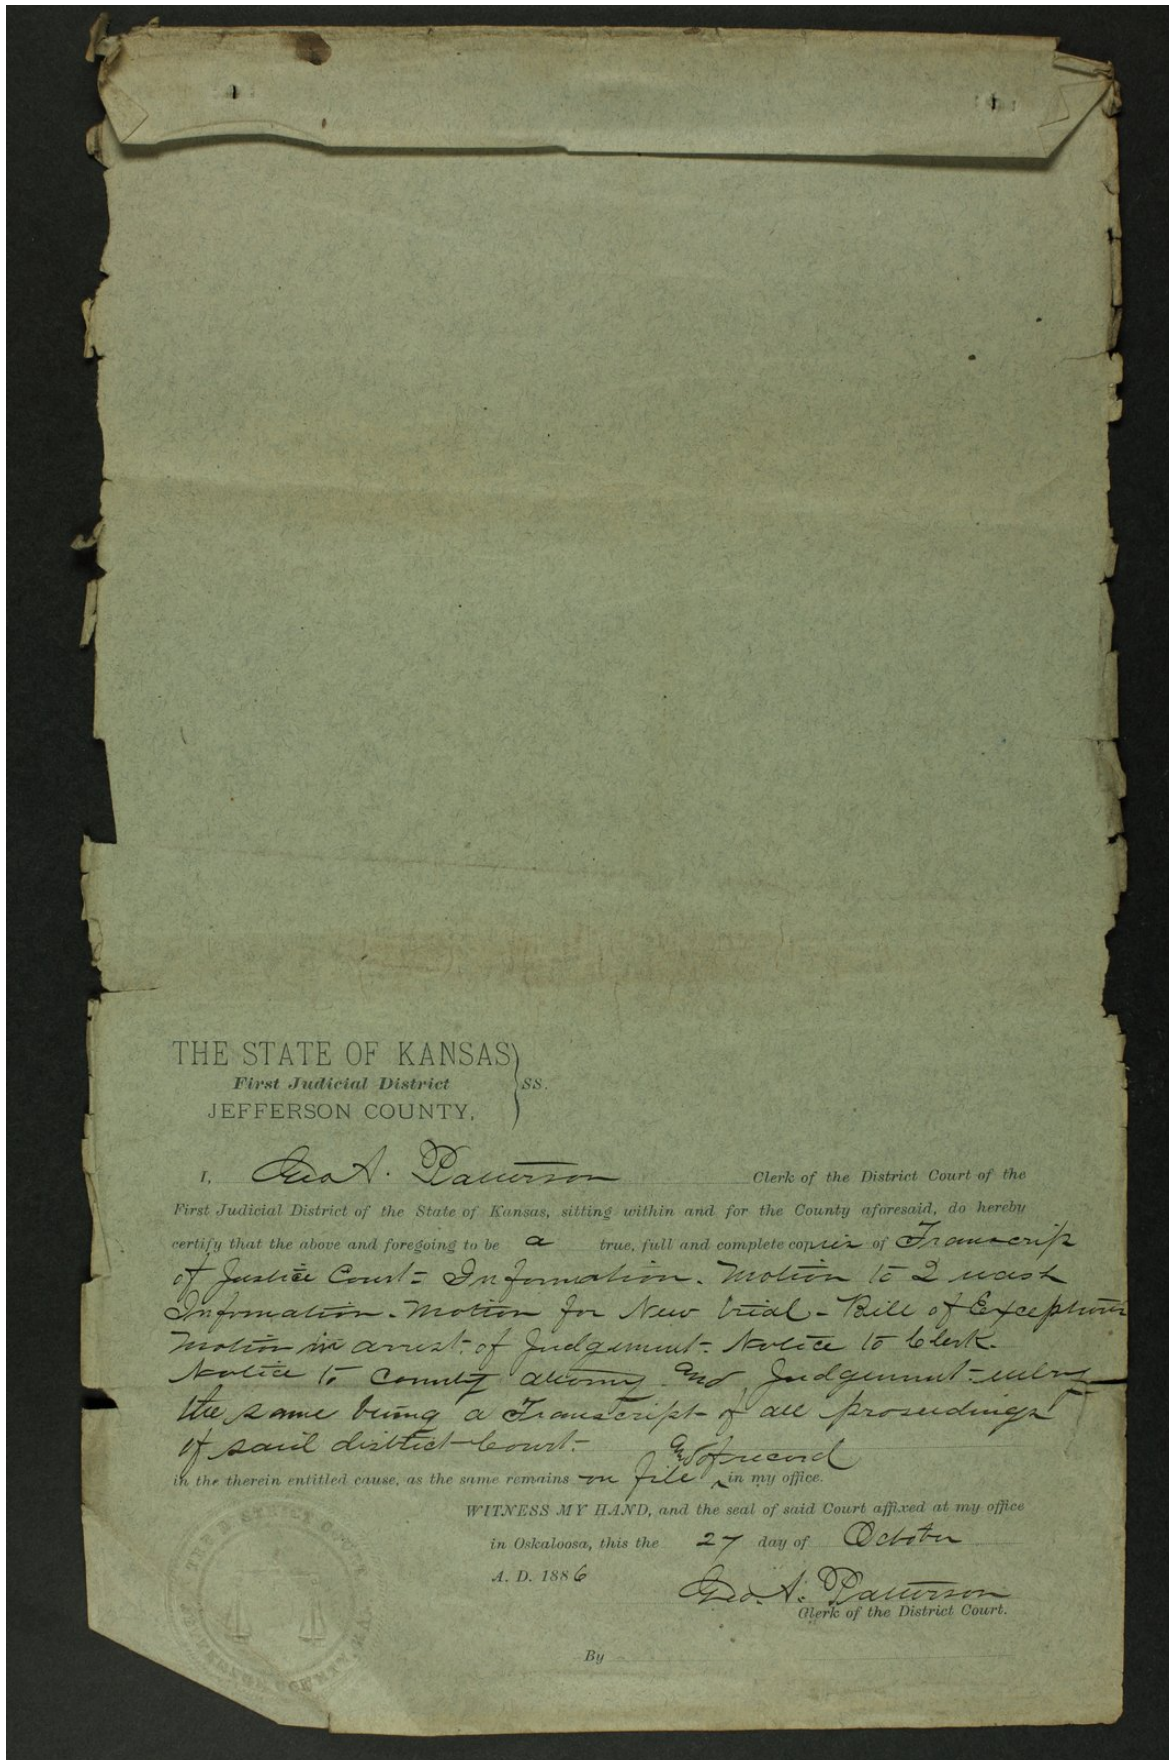 THE STATE OF KANSAS
First Judicial District } SS.
JEFFERSON COUNTY,
I, Geo A. Patterson Clerk of the District Court of the
First Judicial District of the State of Kansas, sitting within and for the County aforesaid, do hereby
certify that the above and foregoing to be a true, full and complete copies of Transcrip
of Justice Court - Information - Motion to Quash
Information - Motion for New trial - Bill of Exceptions
Motion in arrest of Judgement - Notice to Clerk -
Notice to County attorney And Judgement entry
the same being a Transcript of all proseedings
of said district Court -
And of record
in the therein entitled cause, as the same remains on file ^ in my office.
WITNESS MY HAND, and the seal of said Court affixed at my office
in Oskaloosa, this the 27 day of October
A. D. 1886
Geo. A. Patterson
Clerk of the District Court.
By